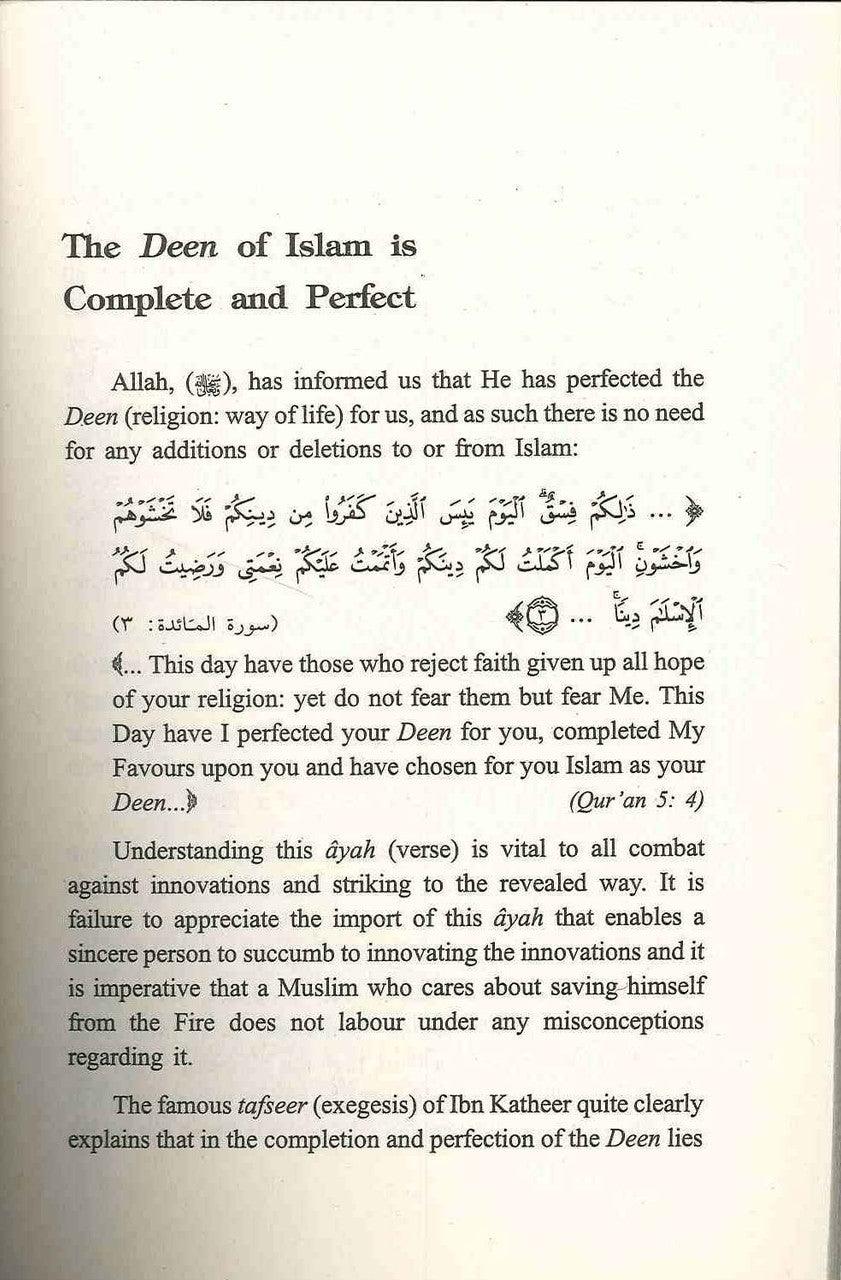 The Deen of Islam is
Complete and Perfect
Allah, (ﷻ), has informed us that He has perfected the
Deen (religion: way of life) for us, and as such there is no need
for any additions or deletions to or from Islam:
﴿ ... ذَٰلِكُمْ فِسْقٌ ۗ ٱلْيَوْمَ يَئِسَ ٱلَّذِينَ كَفَرُوا۟ مِن دِينِكُمْ فَلَا تَخْشَوْهُمْ
وَٱخْشَوْنِ ۚ ٱلْيَوْمَ أَكْمَلْتُ لَكُمْ دِينَكُمْ وَأَتْمَمْتُ عَلَيْكُمْ نِعْمَتِى وَرَضِيتُ لَكُمُ
ٱلْإِسْلَٰمَ دِينًا ۚ ... ٣ ﴾ (سورة المائدة: ٣)
﴿... This day have those who reject faith given up all hope
of your religion: yet do not fear them but fear Me. This
Day have I perfected your Deen for you, completed My
Favours upon you and have chosen for you Islam as your
Deen...﴾ (Qur'an 5: 4)
Understanding this âyah (verse) is vital to all combat
against innovations and striking to the revealed way. It is
failure to appreciate the import of this âyah that enables a
sincere person to succumb to innovating the innovations and it
is imperative that a Muslim who cares about saving himself
from the Fire does not labour under any misconceptions
regarding it.
The famous tafseer (exegesis) of Ibn Katheer quite clearly
explains that in the completion and perfection of the Deen lies